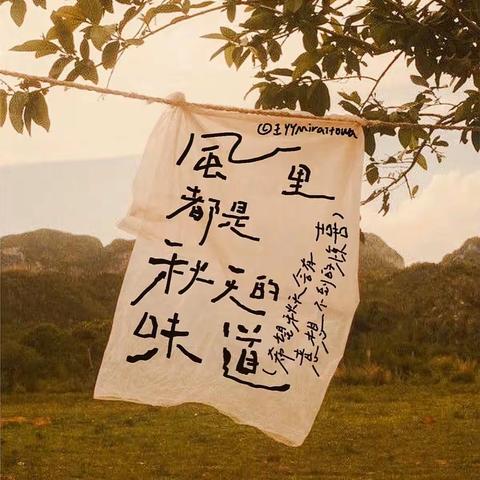 @王YYmiraitowa
風里
都是
秋天的
味道
(希望秋天会有
意想不到的惊喜)